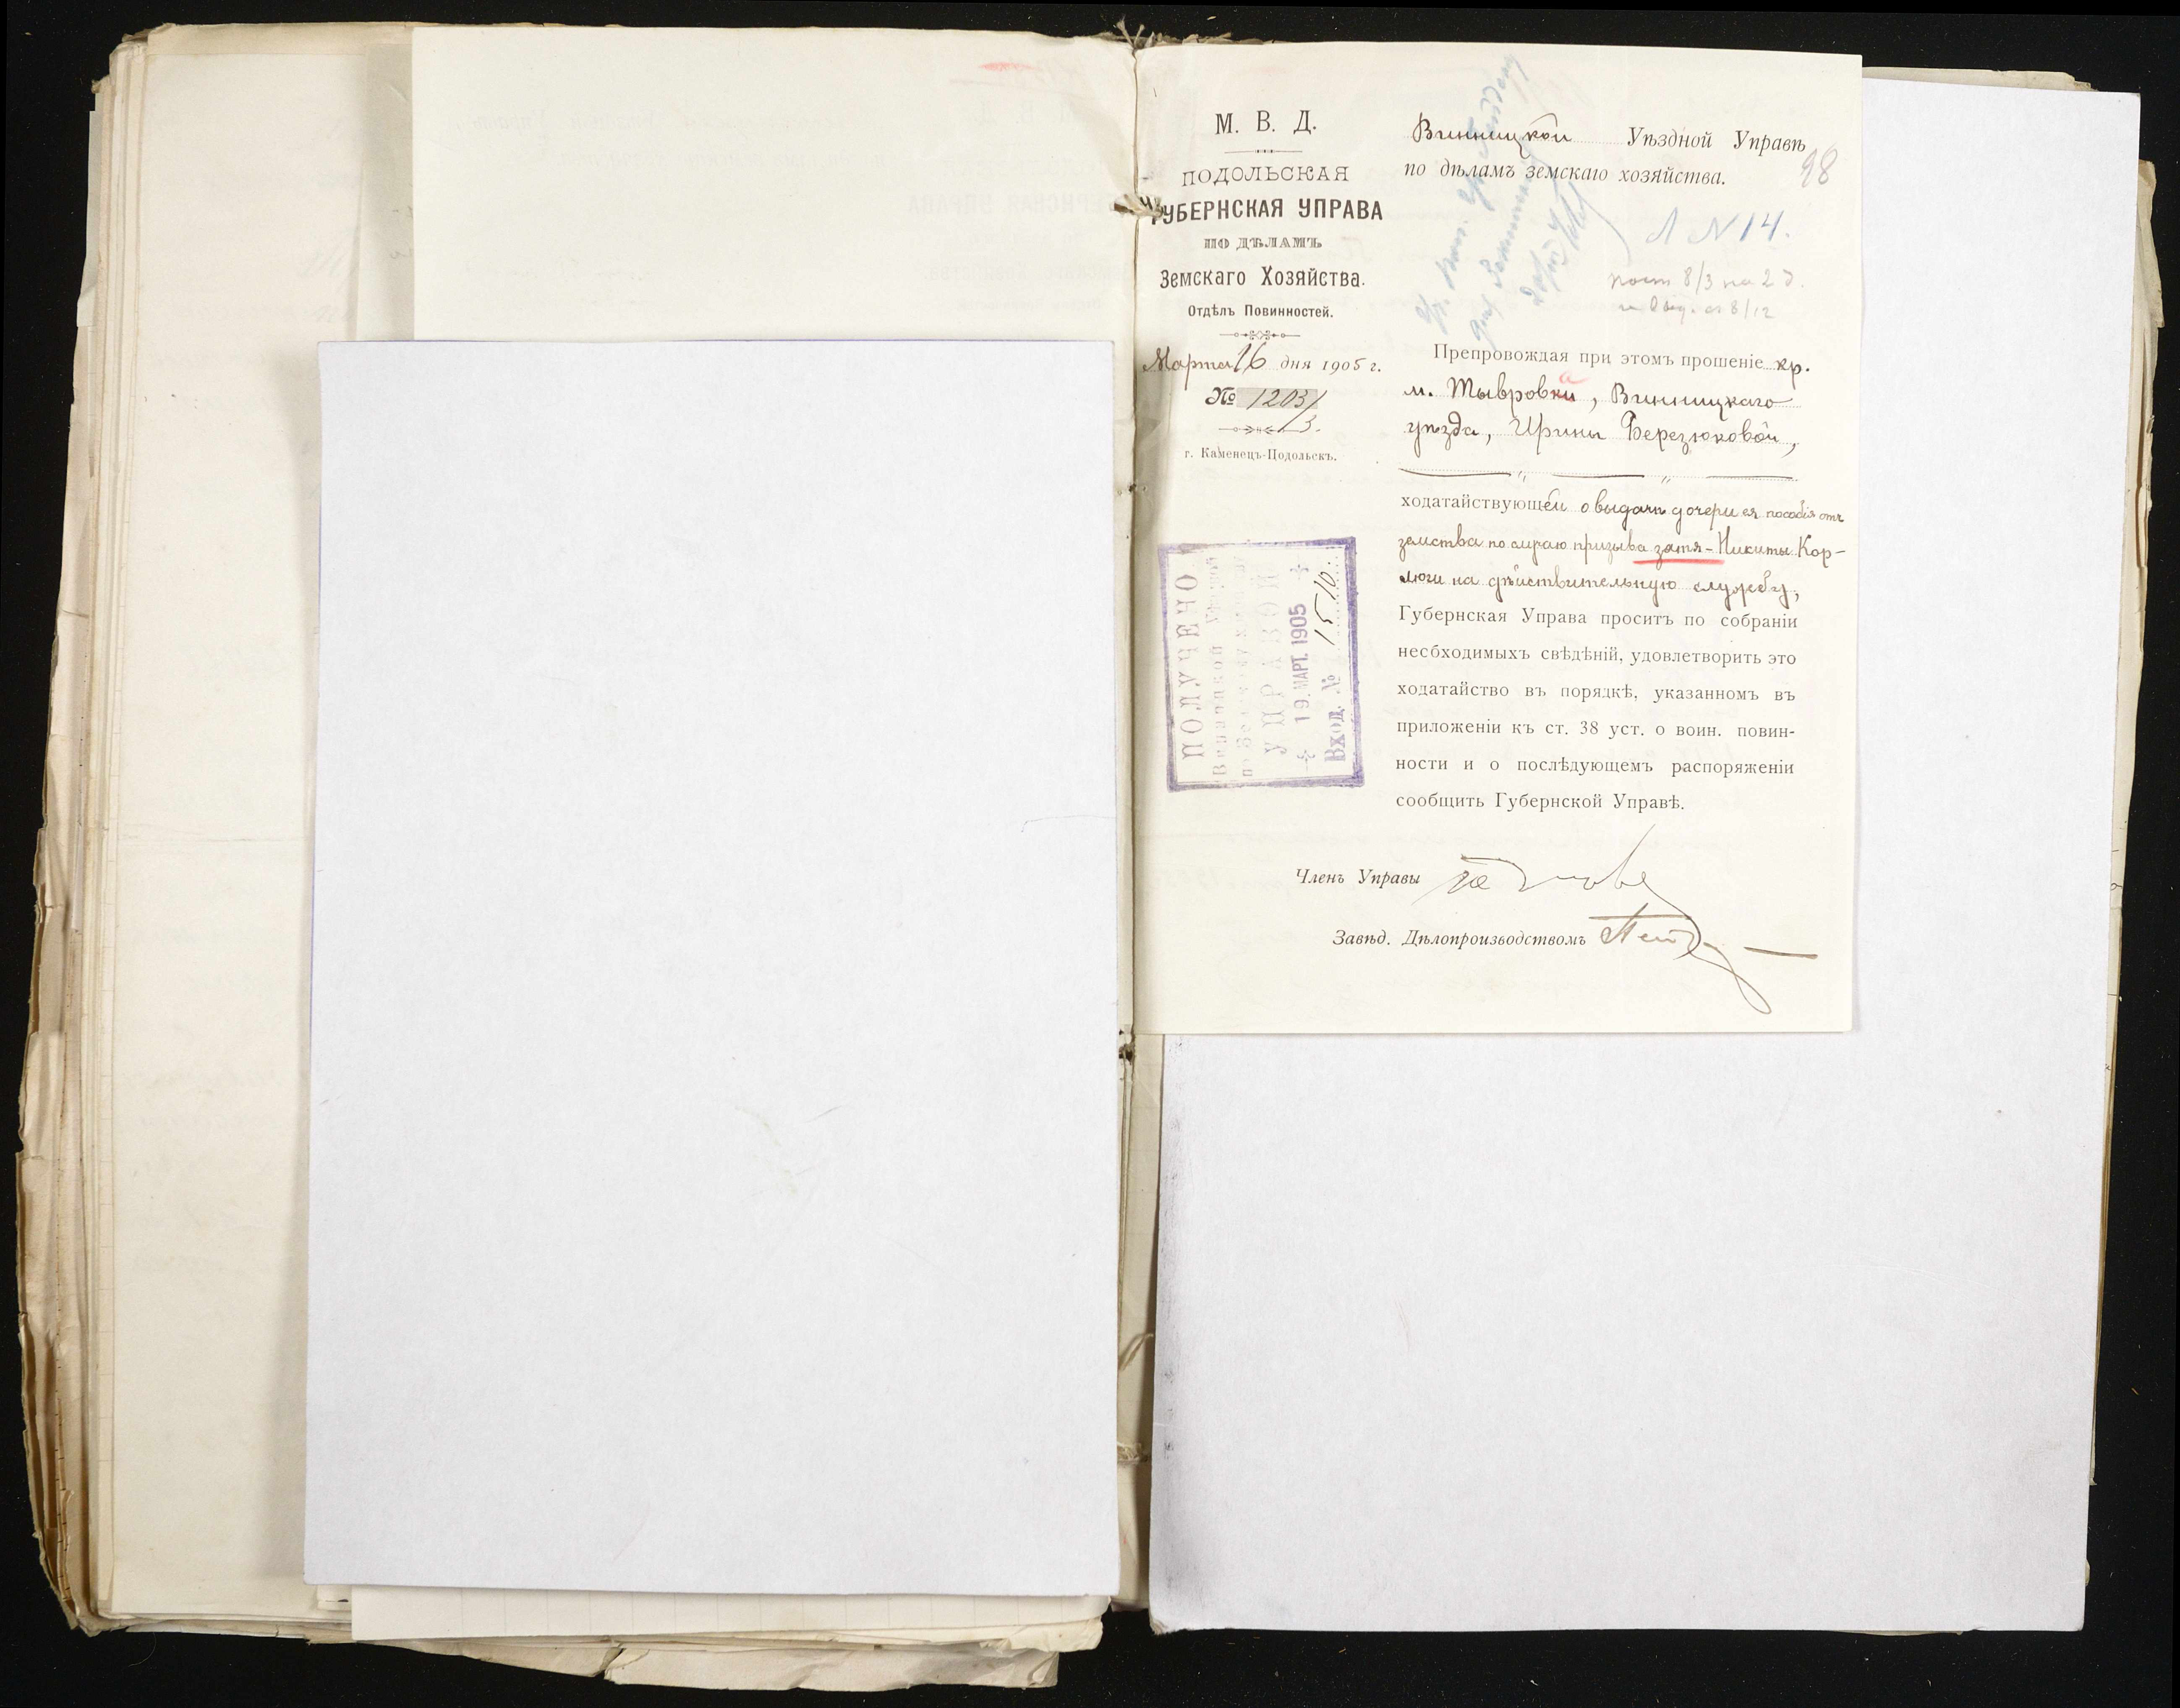 М. В. Д.
ПОДОЛЬСКАЯ
ГУБЕРНСКАЯ УПРАВА
ПО ДѢЛАМЪ
Земскаго Хозяйства.
Отдѣлъ Повинностей.
Марта 16 дня 1905 г.
№ 1203/3.
г. Каменецъ-Подольскъ.
Винницкой Уѣздной Управѣ
по дѣламъ земскаго хозяйства.
98
Л N 14.
Препровождая при этомъ прошеніе кр.
м. Тывровка, Винницкаго
уѣзда, Ирины Березюковой,
ходатайствующей о выдачѣ дочери ея пособія отъ
земства по случаю призыва зятя - Никиты Кор-
люги на дѣйствительную службу,
Губернская Управа проситъ по собраніи
необходимыхъ свѣдѣній, удовлетворить это
ходатайство въ порядкѣ, указанномъ въ
приложеніи къ ст. 38 уст. о воин. повин-
ности и о послѣдующемъ распоряженіи
сообщить Губернской Управѣ.
ПОЛУЧЕНО
Винницкой Уѣздной
УПРАВОЙ
19. МАРТ. 1905
Вход. № 1510.
Членъ Управы
Завѣд. Дѣлопроизводствомъ